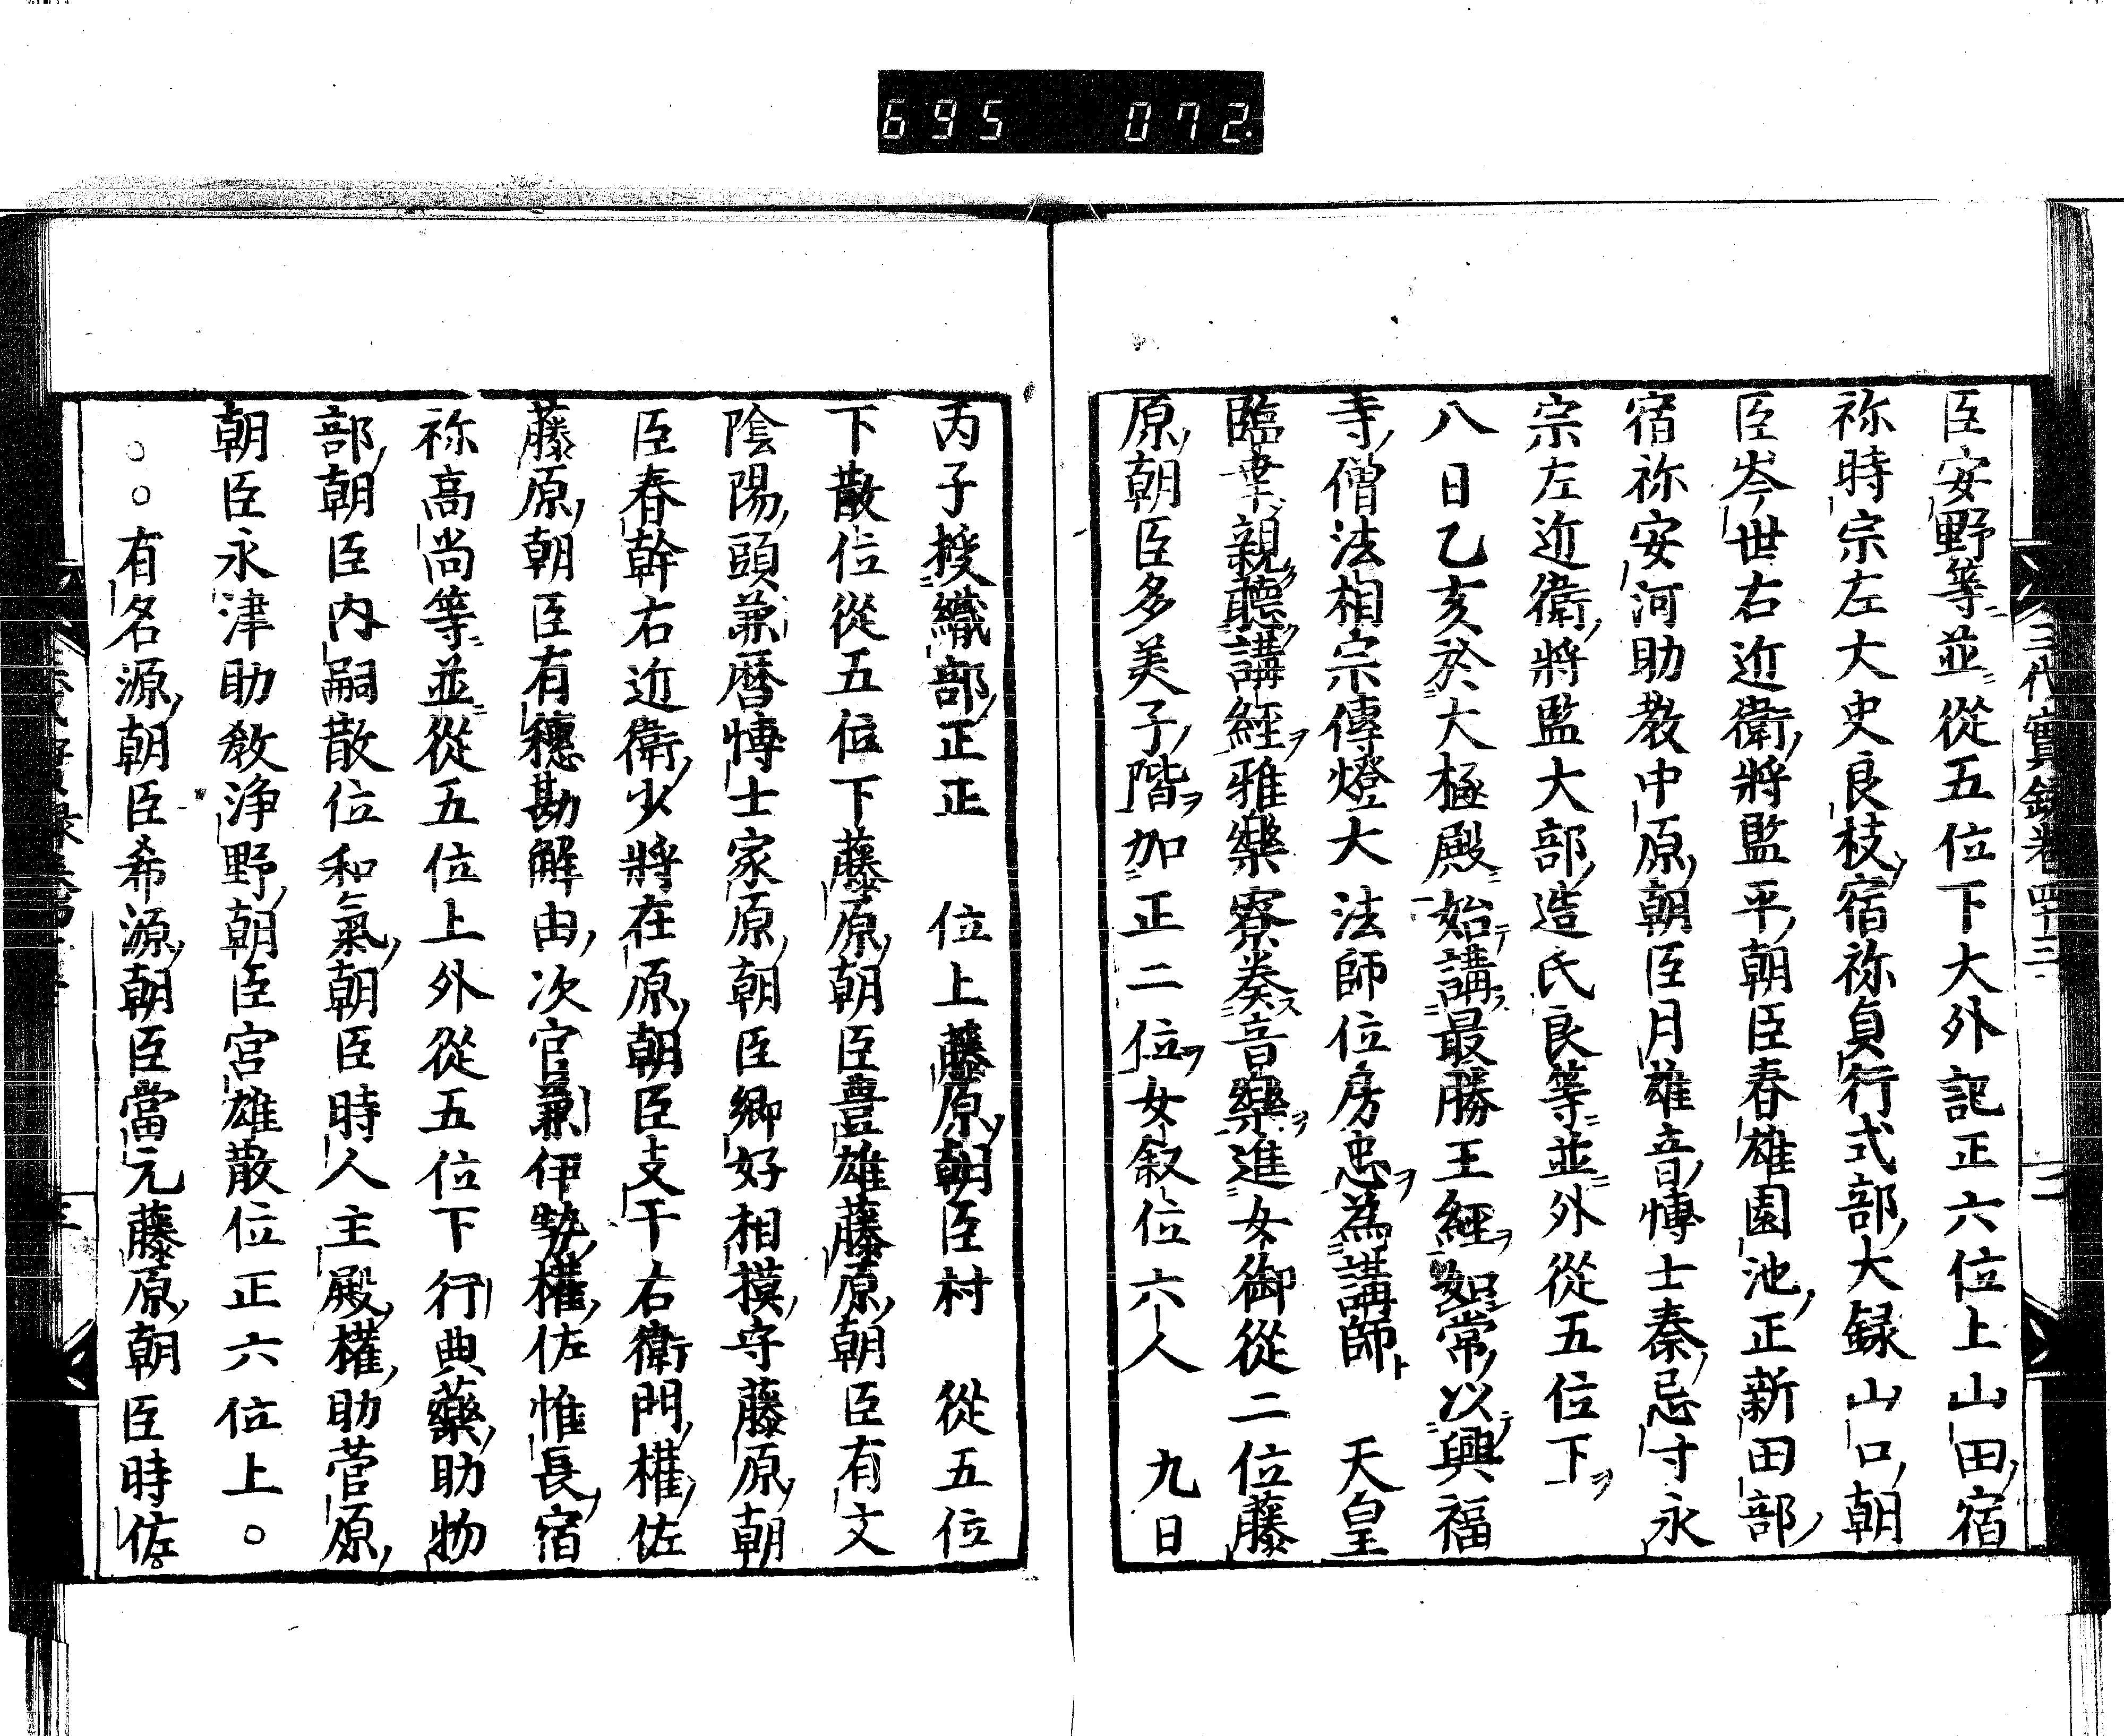 695 072.
三代實録卷四十三
臣安野等並從五位下大外記正六位上山田宿
祢時宗左大史良枝宿祢貞行式部大録山口朝
臣岑世右近衛將監平朝臣春雄園池正新田部
宿祢安河助教中原朝臣月雄音博士秦忌寸永
宗左近衛將監大部造氏良等並外從五位下
八日乙亥於大極殿始講最勝王經如常以興福
寺僧法相宗傳燈大法師位房忠為講師 天皇
臨幸親聽講經雅樂寮奏音樂進女御從二位藤
原朝臣多美子階加正二位女叙位六人 九日
丙子授織部正正 位上藤原朝臣村 從五位
下散位從五位下藤原朝臣豊雄藤原朝臣有文
陰陽頭兼暦博士家原朝臣郷好相摸守藤原朝
臣春幹右近衛少將在原朝臣支干右衛門權佐
藤原朝臣有穗勘解由次官兼伊勢權佐惟良宿
祢高尚等並從五位上外從五位下行典藥助物
部朝臣内嗣散位和氣朝臣時人主殿權助菅原
朝臣永津助敎浄野朝臣宮雄散位正六位上○
○○有名源朝臣希源朝臣當元藤原朝臣時佐